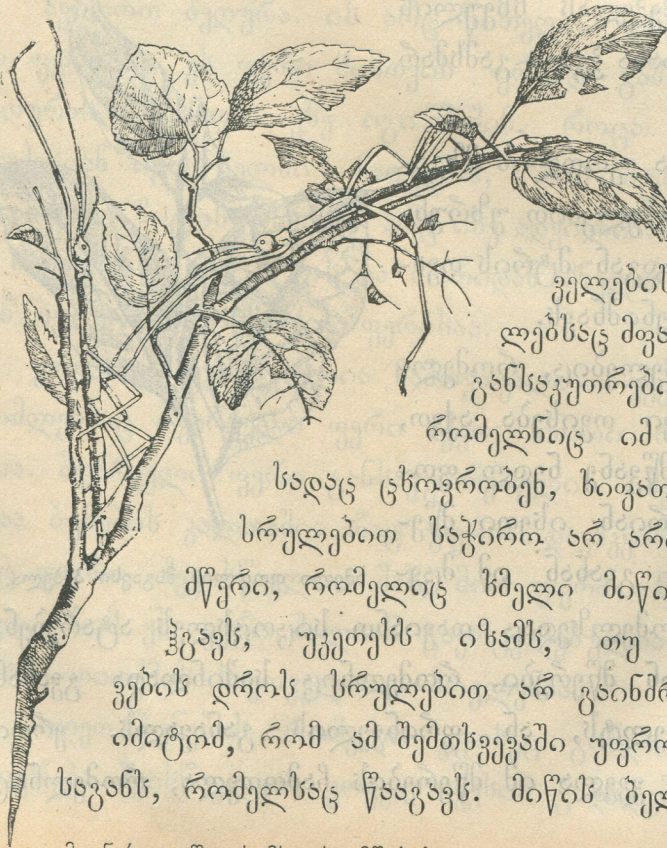 ველების
ლებსაც მფა
განსაკუთრები
რომელნიც იმ
სადაც ცხოვრობენ, სიფათ
სრულებით საჭირო არ არი
მწერი, რომელიც ხმელი მიწი
ჰგავს, უკეთესს იზამს, თუ
ვების დროს სრულებით არ გაინძრ
იმიტომ, რომ ამ შემთხვევაში უფრო
საგანს, რომელსაც წააგავს. მიწის ბელ